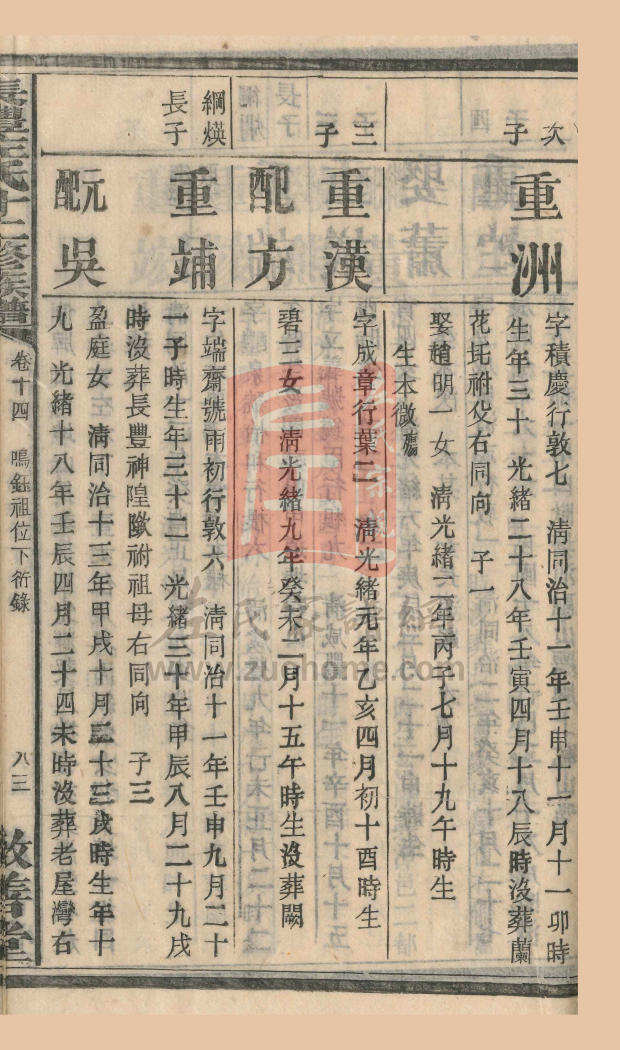 次子
重洲
字積慶行敦七 清同治十一年壬申十一月十一卯時
生年三十 光緒二十八年壬寅四月十八辰時沒葬蘭
花圫祔父右同向 子一
娶趙明一女 清光緒二年丙子七月十九午時生
生本徵
三子
重漢
字成章行葉二 清光緒元年乙亥四月初十酉時生
配方
碧三女 清光緒九年癸未二月十五午時生沒葬闕
綱煐長子
重埔
字端齋號雨初行敦六 清同治十一年壬申九月二十
一子時生年三十二 光緒三十年甲辰八月二十九戌
時沒葬長豐神隍 祔祖母右同向 子三
元配吳
盈庭女 清同治十三年甲戌十月三十三戌時生年十
九 光緒十八年壬辰四月二十四未時沒葬老屋灣右
長豐左氏十二修族譜
卷十四 鳴鈺祖位下衍錄
八三
敦善堂
左氏家譜網
www.zuohome.com